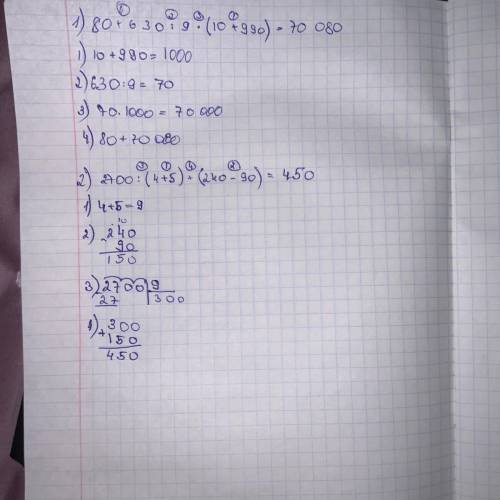 1) 80 + 630 : 9 · (10 + 990) = 70 080
1) 10 + 990 = 1000
2) 630 : 9 = 70
3) 70 · 1000 = 70 000
4) 80 + 70 080
2) 2700 : (4+5) + (240 - 90) = 450
1) 4+5=9
2) 240
- 90
150
3) 2700 9
27 300
4) 300
+ 150
450